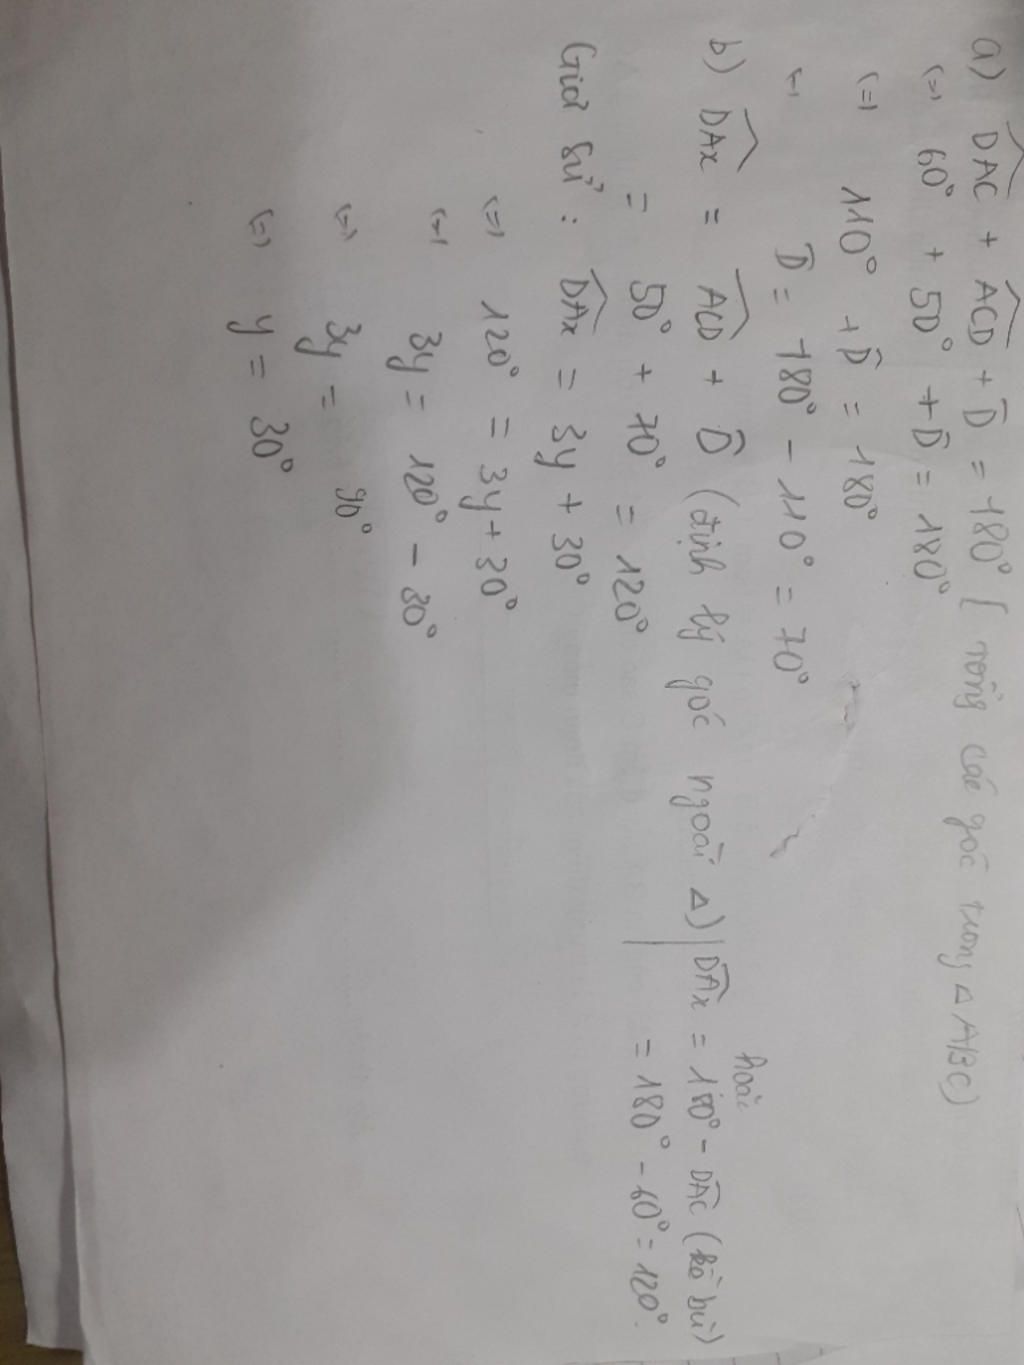 a) DAC + ACD + D = 180° [ tổng các góc trong Δ ABC)
(=) 60° + 50° + D = 180°
(=) 110° + D = 180°
(=) D = 180° - 110° = 70°
b) DAx = ACD + D (định lý góc ngoài Δ) | DAx = 180° - DAC (kề bù)
hoặc
= 50° + 70° = 120° | = 180° - 60° = 120°.
Giả sử : DAx = 3y + 30°
(=) 120° = 3y + 30°
(=) 3y = 120° - 30°
(=) 3y = 90°
(=) y = 30°